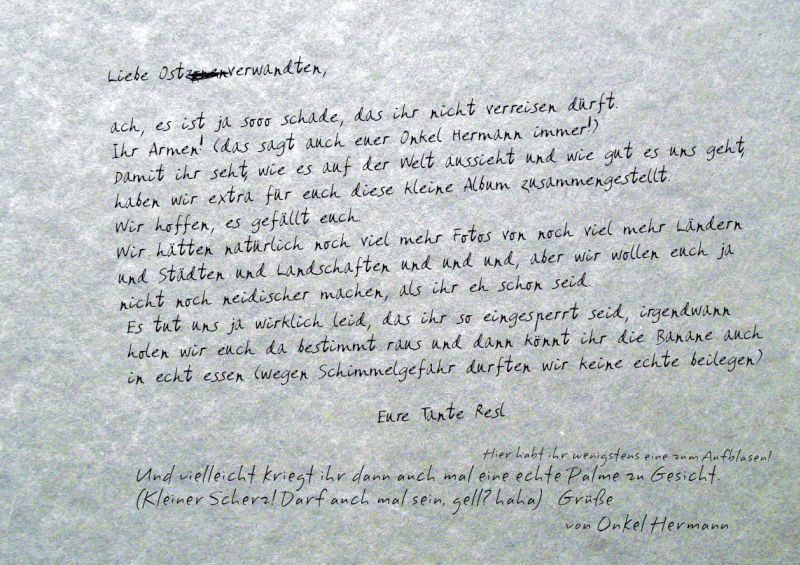 Liebe Ostzonenverwandten,
ach, es ist ja sooo schade, das ihr nicht verreisen dürft.
Ihr Armen! (das sagt auch euer Onkel Hermann immer!)
Damit ihr seht, wie es auf der Welt aussieht und wie gut es uns geht,
haben wir extra für euch diese kleine Album zusammengestellt.
Wir hoffen, es gefällt euch.
Wir hätten natürlich noch viel mehr Fotos von noch viel mehr Ländern
und Städten und Landschaften und und und, aber wir wollen euch ja
nicht noch neidischer machen, als ihr eh schon seid.
Es tut uns ja wirklich leid, das ihr so eingesperrt seid, irgendwann
holen wir euch da bestimmt raus und dann könnt ihr die Banane auch
in echt essen (wegen Schimmelgefahr durften wir keine echte beilegen)
Eure Tante Resl
Hier habt ihr wenigstens eine zum Aufblasen!
Und vielleicht kriegt ihr dann auch mal eine echte Palme zu Gesicht.
(Kleiner Scherz! Darf auch mal sein, gell? haha) Grüße
von Onkel Hermann